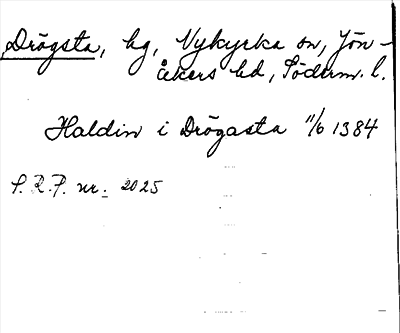 Drögsta, hg, Nykyrka sn, Jön-
åkers hd, Söderm. l.
Haldin i Drögasta 11/6 1384
S.R.P. nr: 2025